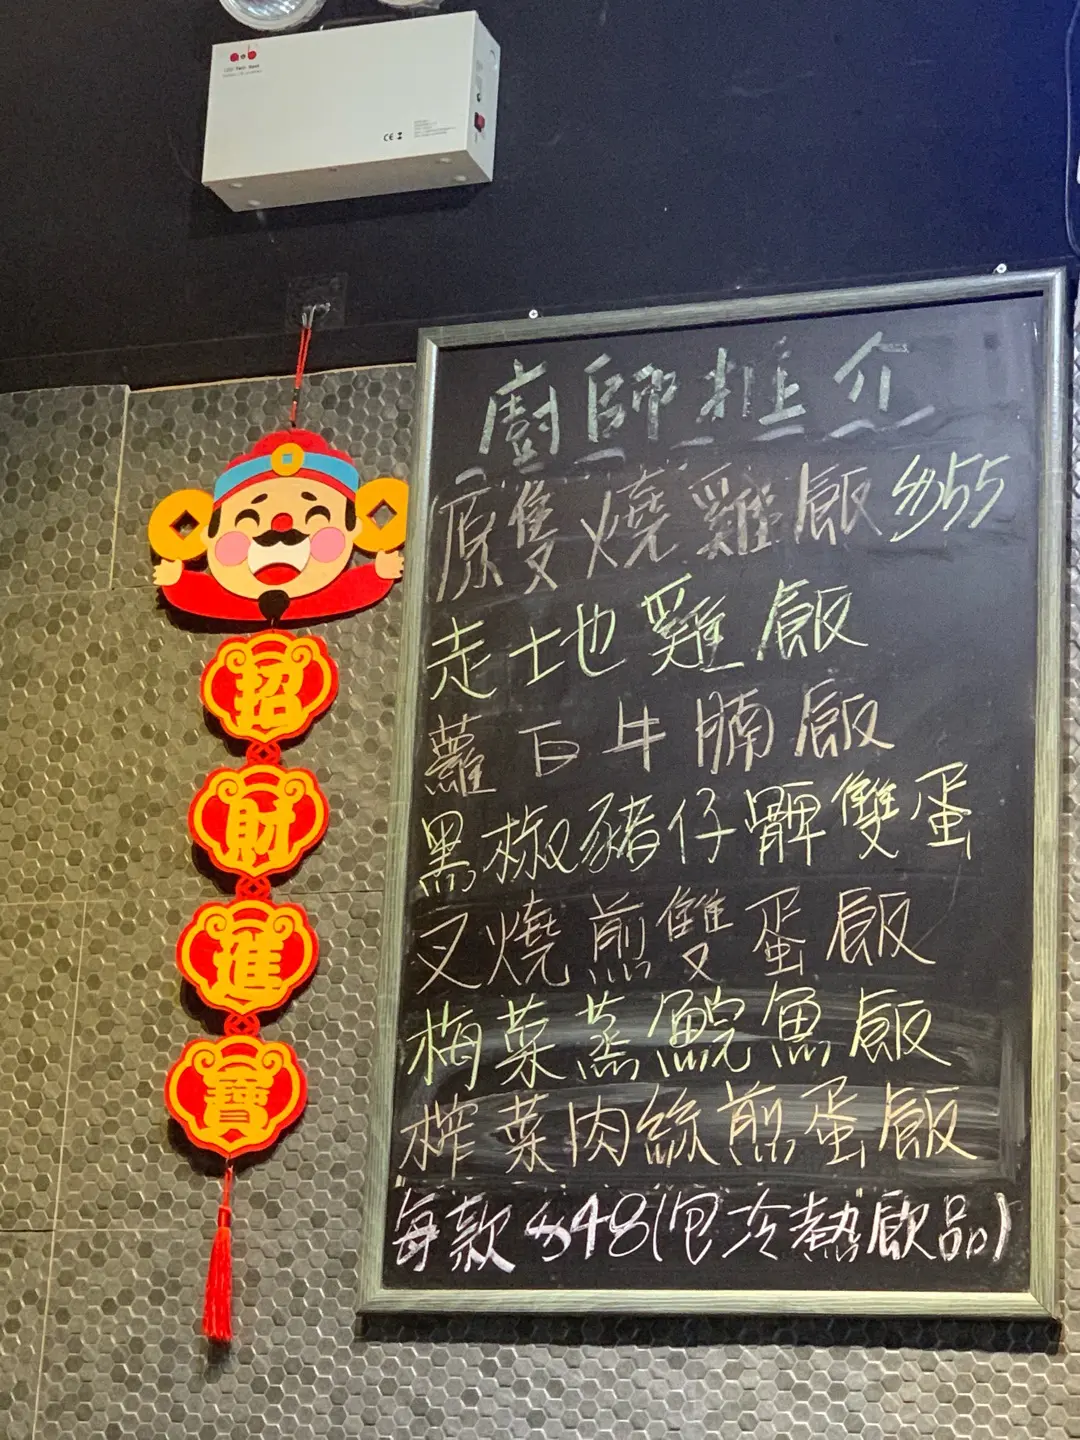 a.b
CE
廚師推介
原隻燒雞飯$55
走土地雞飯
蘿白牛腩飯
黑椒豬仔髀雙蛋
叉燒煎雙蛋飯
梅菜蒸鯇魚飯
榨菜肉絲煎蛋飯
每款$48(包冷熱飲品)
招
財
進
寶